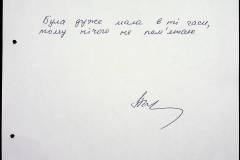 Була дуже мала в ті часи,
тому нічого не пам'ятаю